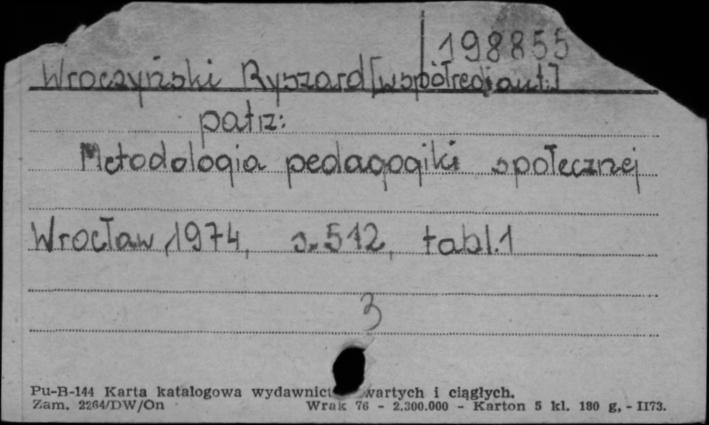 198855
Wroczyński Ryszard [współred i aut.]
patrz:
Metodologia pedagogiki społecznej
Wrocław, 1974, s. 512, tabl. 1
3
Pu-B-144 Karta katalogowa wydawnict wartych i ciągłych.
Zam. 2264/DW/On Wrak 76 - 2.300.000 - Karton 5 kl. 180 g, - II73.